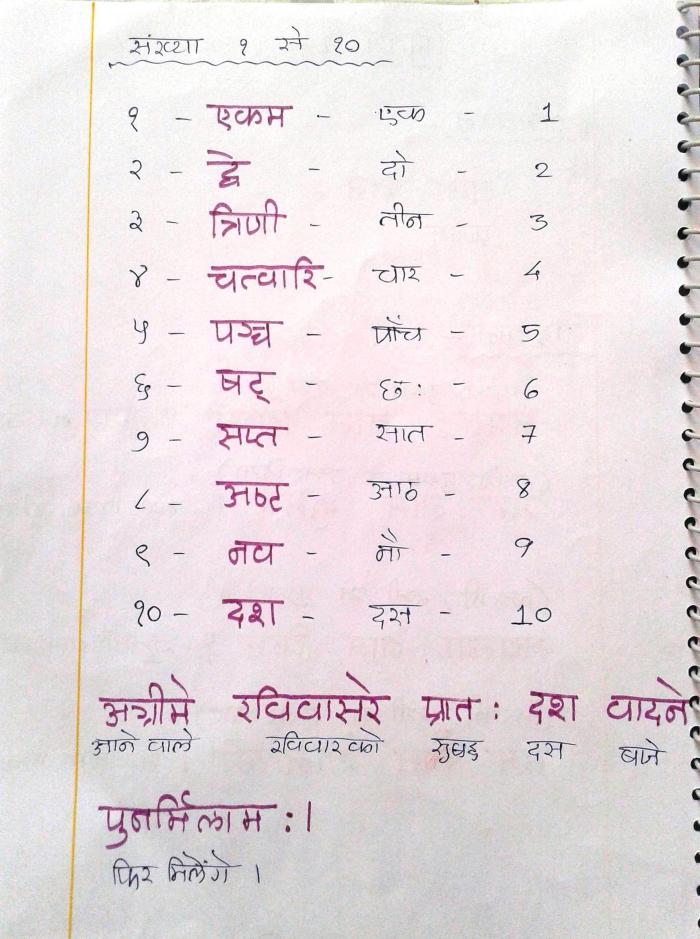 संख्या १ से १०
१ - एकम - एक - 1
२ - द्वे - दो - 2
३ - त्रिणी - तीन - 3
४ - चत्वारि - चार - 4
५ - पञ्च - पाँच - 5
६ - षट् - छः - 6
७ - सप्त - सात - 7
८ - अष्ट - आठ - 8
९ - नव - नौ - 9
१० - दश - दस - 10
अग्रीमे रविवासरे प्रातः दश वादने
आने वाले रविवार को सुबह दस बजे
पुनर्मिलामः।
फिर मिलेंगे।